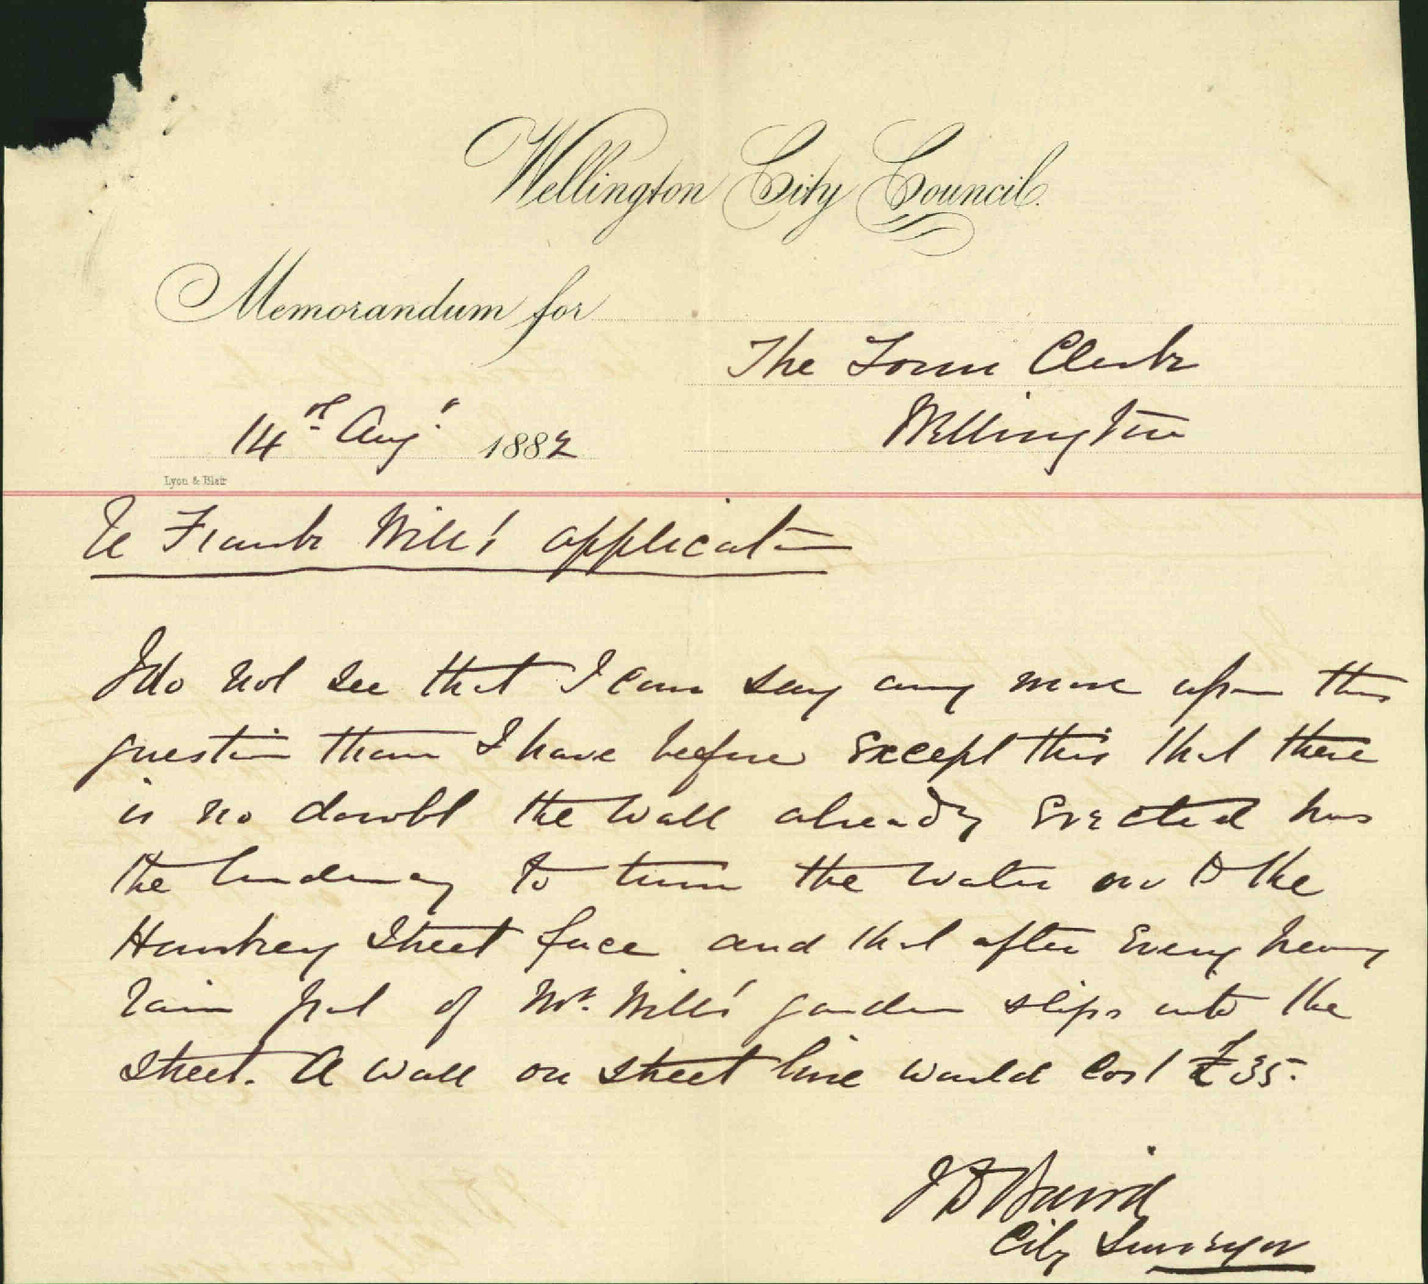 Wellington City Council.
Memorandum for
The Town Clerk
Wellington
14th Augt 1882
Lyon & Blair
re Frank Mills' application
I do not see that I can say any more upon this
question than I have before except this that there
is no doubt the wall already erected has
the tendency to turn the water on to the
Hawkey Street face and that after every heavy
rain part of Mr. Mills' garden slips into the
Street. A wall on street line would cost £35.
J D Baird
City Surveyor